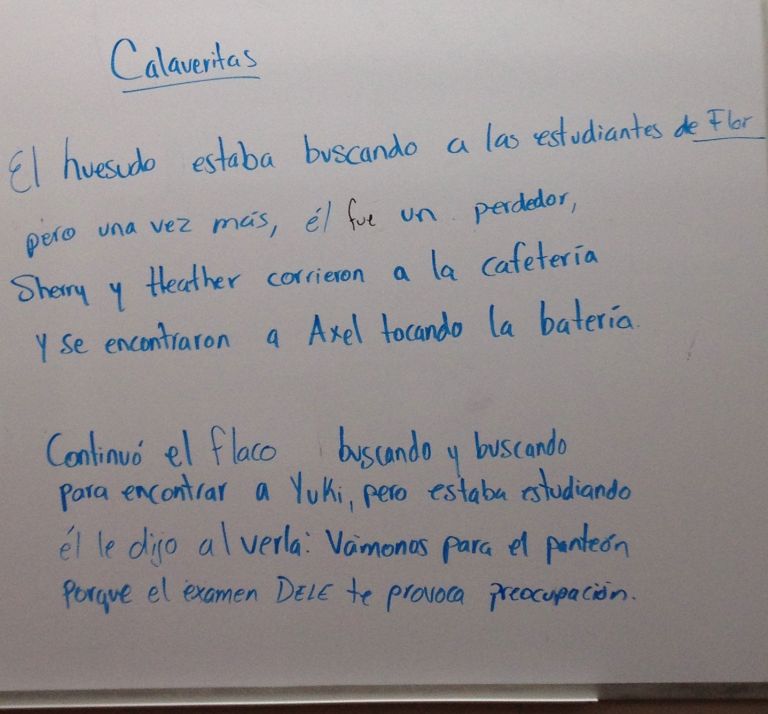 Calaveritas
El huesudo estaba buscando a las estudiantes de Flor
pero una vez más, él fue un perdedor,
Sherry y Heather corrieron a la cafetería
y se encontraron a Axel tocando la batería.
Continuó el flaco buscando y buscando
para encontrar a Yuki, pero estaba estudiando
él le dijo al verla: Vámonos para el panteón
Porque el examen DELE te provoca preocupación.